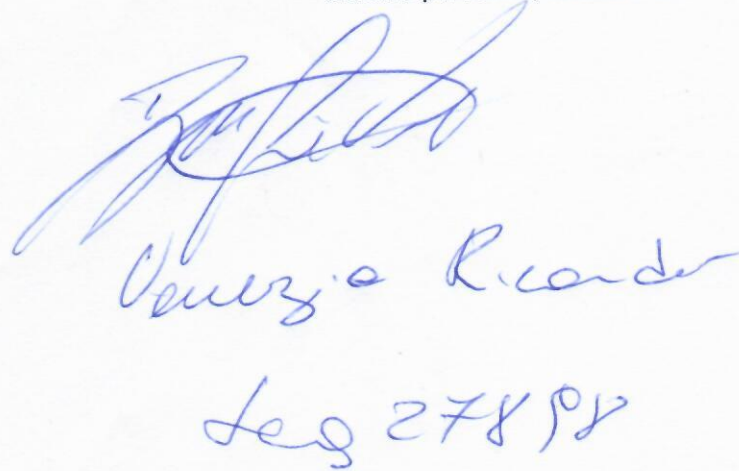 Venezia Ricardo
Leg 27898